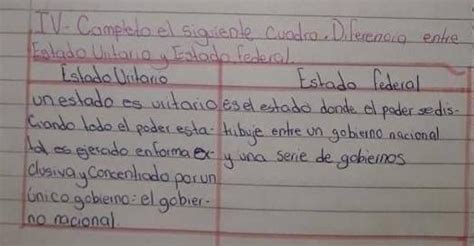 IV- Completo el siguiente Cuadro. Diferencia entre
Estado Unitario y Estado Federal.
Estado Unitario
Estado Federal
un estado es unitario
cuando todo el poder esta-
tal es ejerado en forma ex-
clusiva y Concentrado por un
único gobierno: el gobier-
no nacional.
es el estado donde el poder se dis-
tribuje entre un gobierno nacional
y una serie de gobiernos